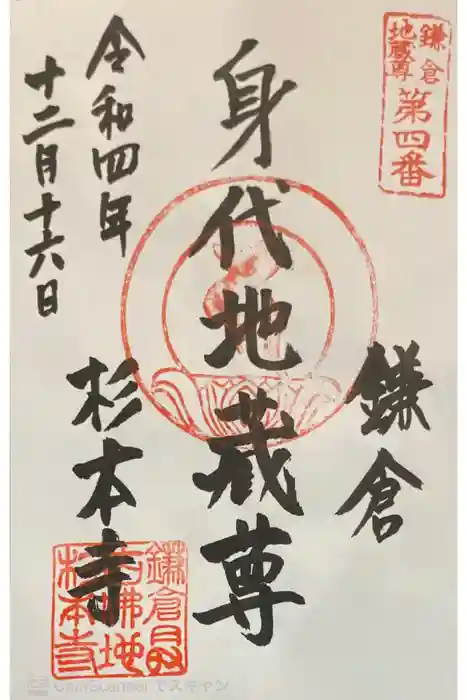 鎌倉
地蔵尊
第四番
鎌倉
身代地蔵尊
令和四年
十二月十六日
杉本寺
CamScanner でスキャン